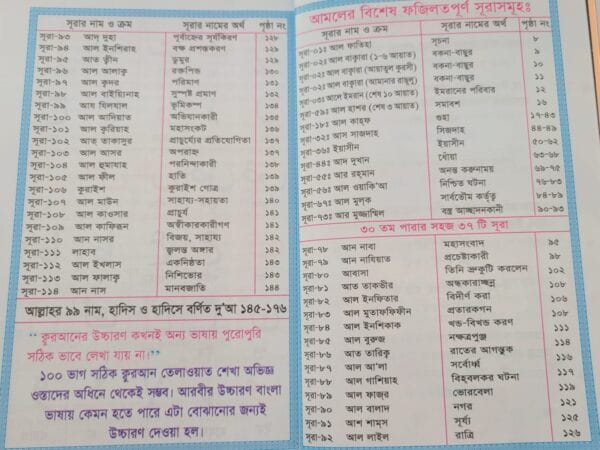 সূরার নাম ও ক্রম সূরার নামের অর্থ পৃষ্ঠা নং
সূরা-৯৩ আদ দুহা পূর্বাহ্নের সূর্যকিরণ ১২৮
সূরা-৯৪ আল ইনশিরাহ বক্ষ প্রশস্তকরণ ১২৮
সূরা-৯৫ আত ত্বীন ডুমুর ১২৯
সূরা-৯৬ আল আলাক্ব রক্তপিন্ড ১৩০
সূরা-৯৭ আল ক্বদর পরিমাণ ১৩১
সূরা-৯৮ আল বাইয়্যিনাহ সুস্পষ্ট প্রমাণ ১৩২
সূরা-৯৯ আয যিলযাল ভূমিকম্প ১৩৪
সূরা-১০০ আল আদিয়াত অভিযানকারী ১৩৫
সূরা-১০১ আল ক্বরিয়াহ মহাসংকট ১৩৬
সূরা-১০২ আত তাকাসুর প্রাচুর্য্যের প্রতিযোগিতা ১৩৭
সূরা-১০৩ আল আসর অপরাহ্ন ১৩৭
সূরা-১০৪ আল হুমাযাহ পরনিন্দাকারী ১৩৮
সূরা-১০৫ আল ফীল হাতি ১৩৯
সূরা-১০৬ কুরাইশ কুরাইশ গোত্র ১৩৯
সূরা-১০৭ আল মাউন সাহায্য-সহায়তা ১৪০
সূরা-১০৮ আল কাওসার প্রাচুর্য ১৪১
সূরা-১০৯ আল কাফিরূন অস্বীকারকারীগণ ১৪১
সূরা-১১০ আন নাসর বিজয়, সাহায্য ১৪২
সূরা-১১১ লাহাব জ্বলন্ত অঙ্গার ১৪২
সূরা-১১২ আল ইখলাস একনিষ্ঠতা ১৪৩
সূরা-১১৩ আল ফালাক্ব নিশিভোর ১৪৩
সূরা-১১৪ আন নাস মানবজাতি ১৪৪
আল্লাহর ৯৯ নাম, হাদিস ও হাদিসে বর্ণিত দু'আ ১৪৫-১৭৬
“ কুরআনের উচ্চারণ কখনই অন্য ভাষায় পুরোপুরি
সঠিক ভাবে লেখা যায় না।”
১০০ ভাগ সঠিক কুরআন তেলাওয়াত শেখা অভিজ্ঞ
ওস্তাদের অধিনে থেকেই সম্ভব। আরবীর উচ্চারণ বাংলা
ভাষায় কেমন হতে পারে এটা বোঝানোর জন্যই
উচ্চারণ দেওয়া হল।
আমলের বিশেষ ফজিলতপূর্ণ সূরাসমূহঃ
সূরার নাম ও ক্রম সূরার নামের অর্থ পৃষ্ঠা নং
সূরা-০১ঃ আল ফাতিহা সূচনা ৮
সূরা-০২ঃ আল বাক্বারা (১-৬ আয়াত) বকনা-বাছুর ৯
সূরা-০২ঃ আল বাক্বারা (আয়াতুল কুরসী) বকনা-বাছুর ১০
সূরা-০২ঃ আল বাক্বারা (আমানার রাছুলু) বকনা-বাছুর ১১
সূরা-০৩ঃ আলে ইমরান (শেষ ১০ আয়াত) ইমরানের পরিবার ১২
সূরা-৫৯ঃ আল হাশর (শেষ ৩ আয়াত) সমাবশ ১৬
সূরা-১৮ঃ আল কাহ্ফ গুহা ১৭-৪৩
সূরা-৩২ঃ আস সাজদাহ সিজদাহ ৪৪-৪৯
সূরা-৩৬ঃ ইয়াসীন ইয়াসীন ৫০-৬২
সূরা-৪৪ঃ আদ দুখান ধোঁয়া ৬৩-৬৮
সূরা-৫৫ঃ আর রহমান অনন্ত করুনাময় ৬৯-৭৫
সূরা-৫৬ঃ আল ওয়াকি'আ নিশ্চিত ঘটনা ৭৬-৮৩
সূরা-৬৭ঃ আল মুলক সার্বভৌম কর্তৃত্ব ৮৪-৮৯
সূরা-৭৩ঃ আর মুজ্জাম্মিল বস্ত্র আচ্ছাদনকানী ৯০-৯৩
৩০ তম পারার সহজ ৩৭ টি সূরা
সূরা-৭৮ আন নাবা মহাসংবাদ ৯৫
সূরা-৭৯ আন নাযিয়াত প্রচেষ্টাকারী ৯৮
সূরা-৮০ আবাসা তিনি ভ্রুকুটি করলেন ১০২
সূরা-৮১ আত তাকভীর অন্ধকারাচ্ছন্ন ১০৮
সূরা-৮২ আল ইনফিতার বিদীর্ণ করা ১০৬
সূরা-৮৩ আল মুতাফফিফীন প্রতারকগন ১০৮
সূরা-৮৪ আল ইনশিকাক খন্ড-বিখন্ড করণ ১১১
সূরা-৮৫ আল বুরুজ নক্ষত্রপুঞ্জ ১১৩
সূরা-৮৬ আত তারিকু রাতের আগন্তুক ১১৪
সূরা-৮৭ আল আ'লা সর্বোর্ধ্ব ১১৬
সূরা-৮৮ আল গাশিয়াহ্ বিহ্বলকর ঘটনা ১১৭
সূরা-৮৯ আল ফাজর ভোরবেলা ১১৯
সূরা-৯০ আল বালাদ নগর ১২১
সূরা-৯১ আশ শামস সূর্য্য ১২৫
সূরা-৯২ আল লাইল রাত্রি ১২৬